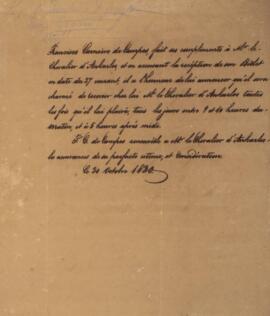 Francisco Carneiro de Campos fait ses compliments à Mr. le
Chevalier d'Ankarloo, et en accusant la réception de son Billet
en date du 27 courant, il a l'honneur de lui annoncer qu'il sera
charmé de recevoir chez lui Mr. le Chevalier d'Ankarloo toutes
les fois qu'il lui plaira, tous les jours entre 9 et 10 heures du
matin, et à 5 heures après midi.
F. C. de Campos renouvelle à Mr. le Chevalier d'Ankarloo
les assurances de sa parfaite estime, et considération.
Le 30 Octobre 1830